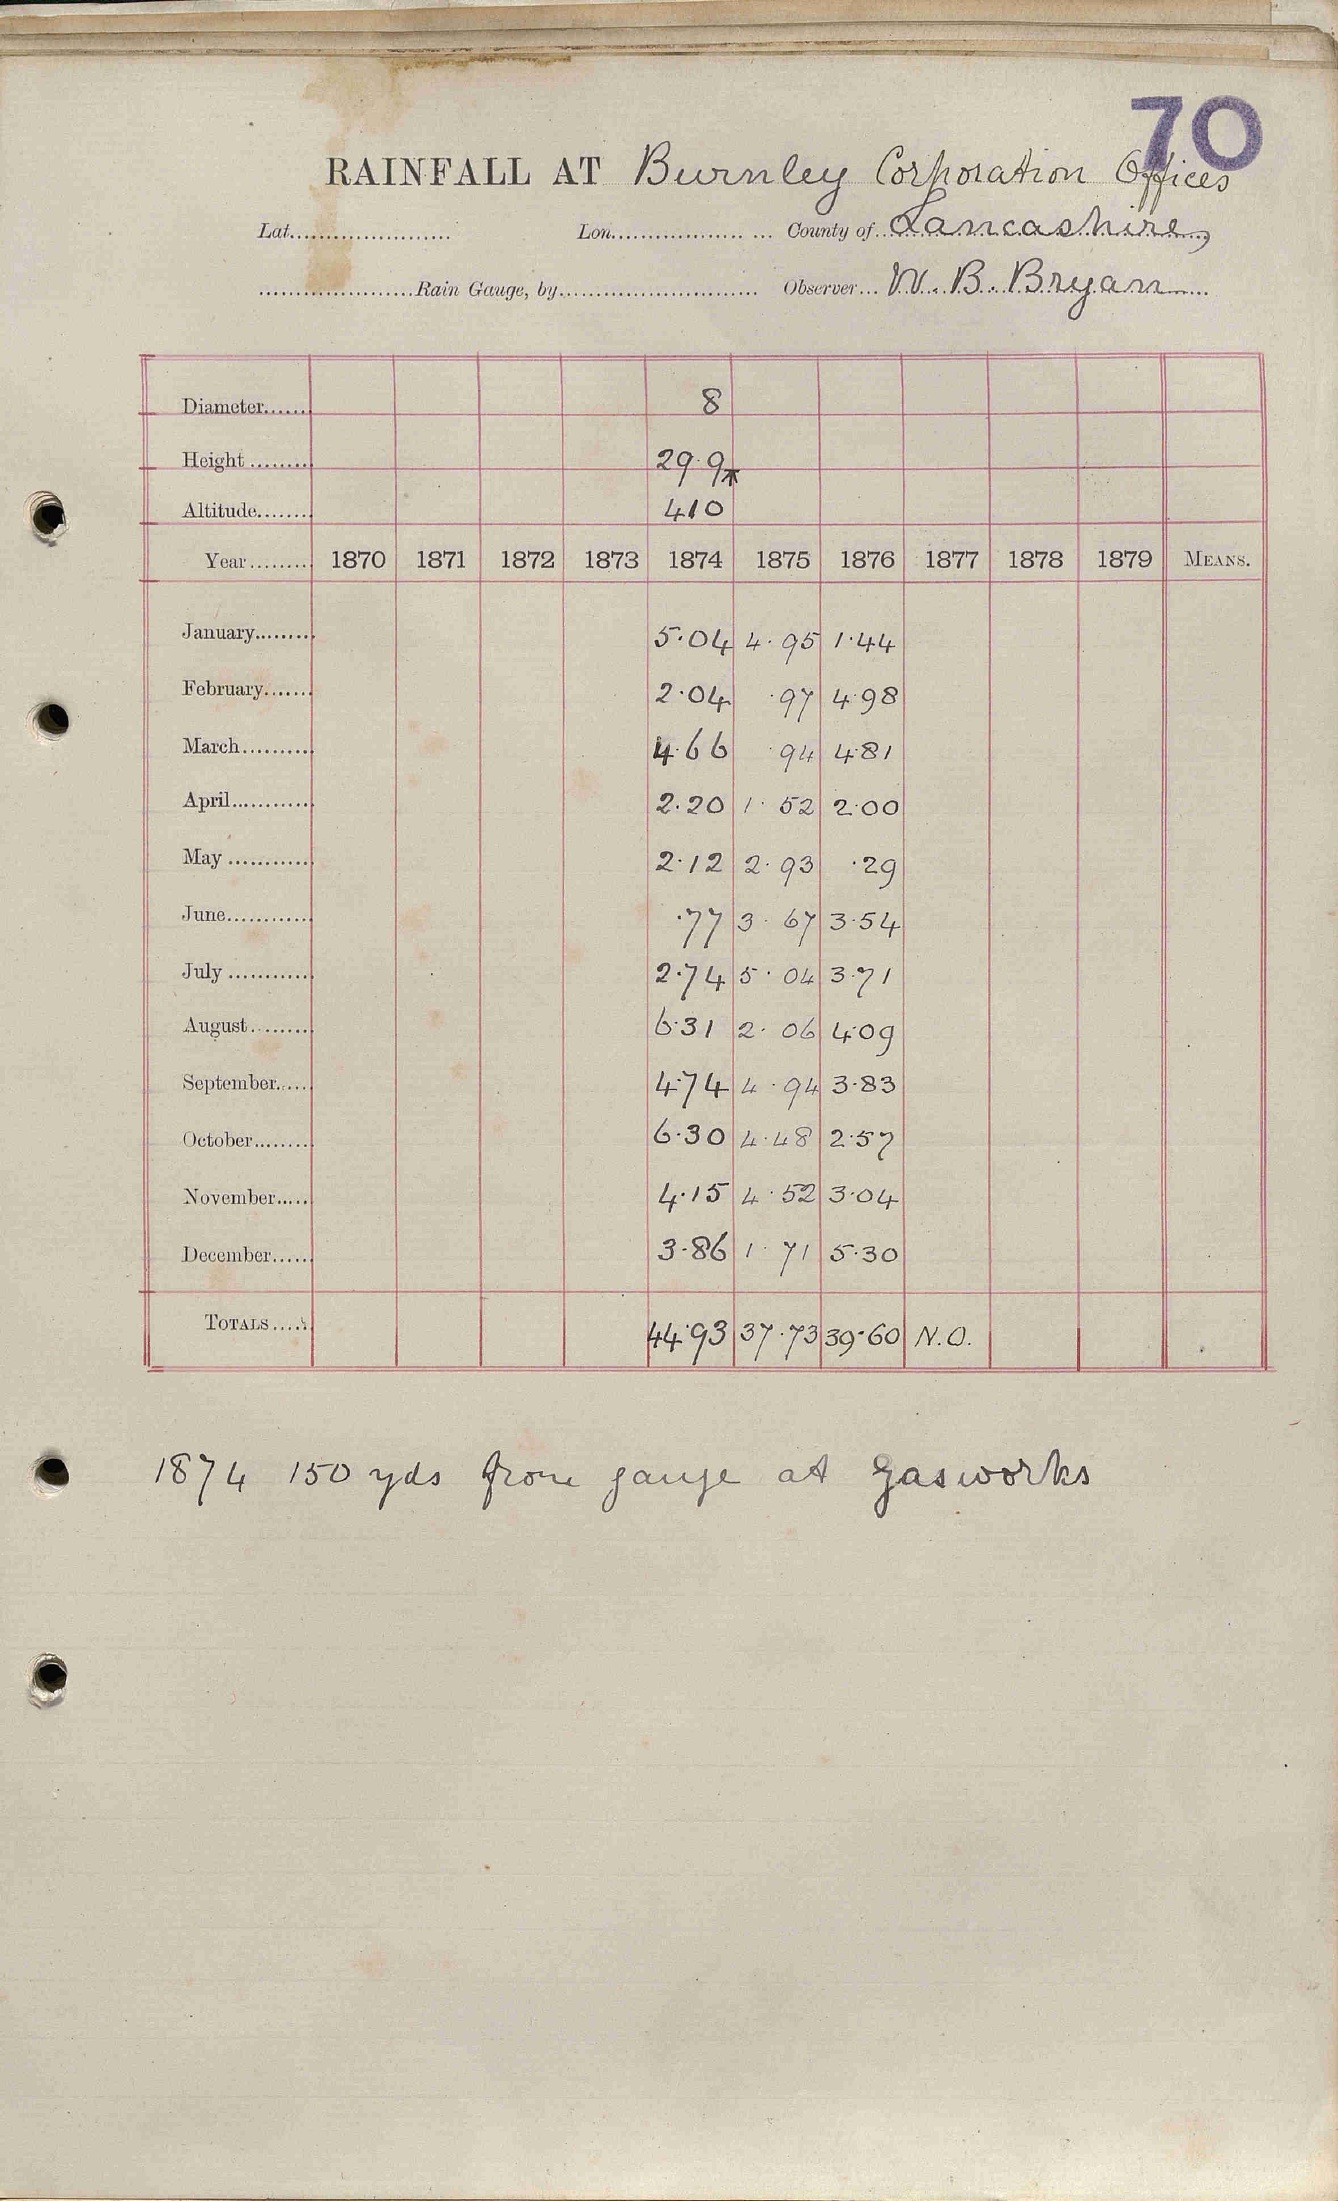 70
RAINFALL AT Burnley Corporation Offices
Lat. Lon. County of Lancashire,
Rain Gauge, by Observer W. B. Bryan
Diameter 8
Height 29.9*
Altitude 410
Year 1870 1871 1872 1873 1874 1875 1876 1877 1878 1879 MEANS.
January 5.04 4.95 1.44
February 2.04 .97 4.98
March 4.66 .94 4.81
April 2.20 1.52 2.00
May 2.12 2.93 .29
June .77 3.67 3.54
July 2.74 5.04 3.71
August 6.31 2.06 4.09
September 4.74 4.94 3.83
October 6.30 4.48 2.57
November 4.15 4.52 3.04
December 3.86 1.71 5.30
TOTALS 44.93 37.73 39.60 N.O.
1874 150 yds from gauge at Gasworks